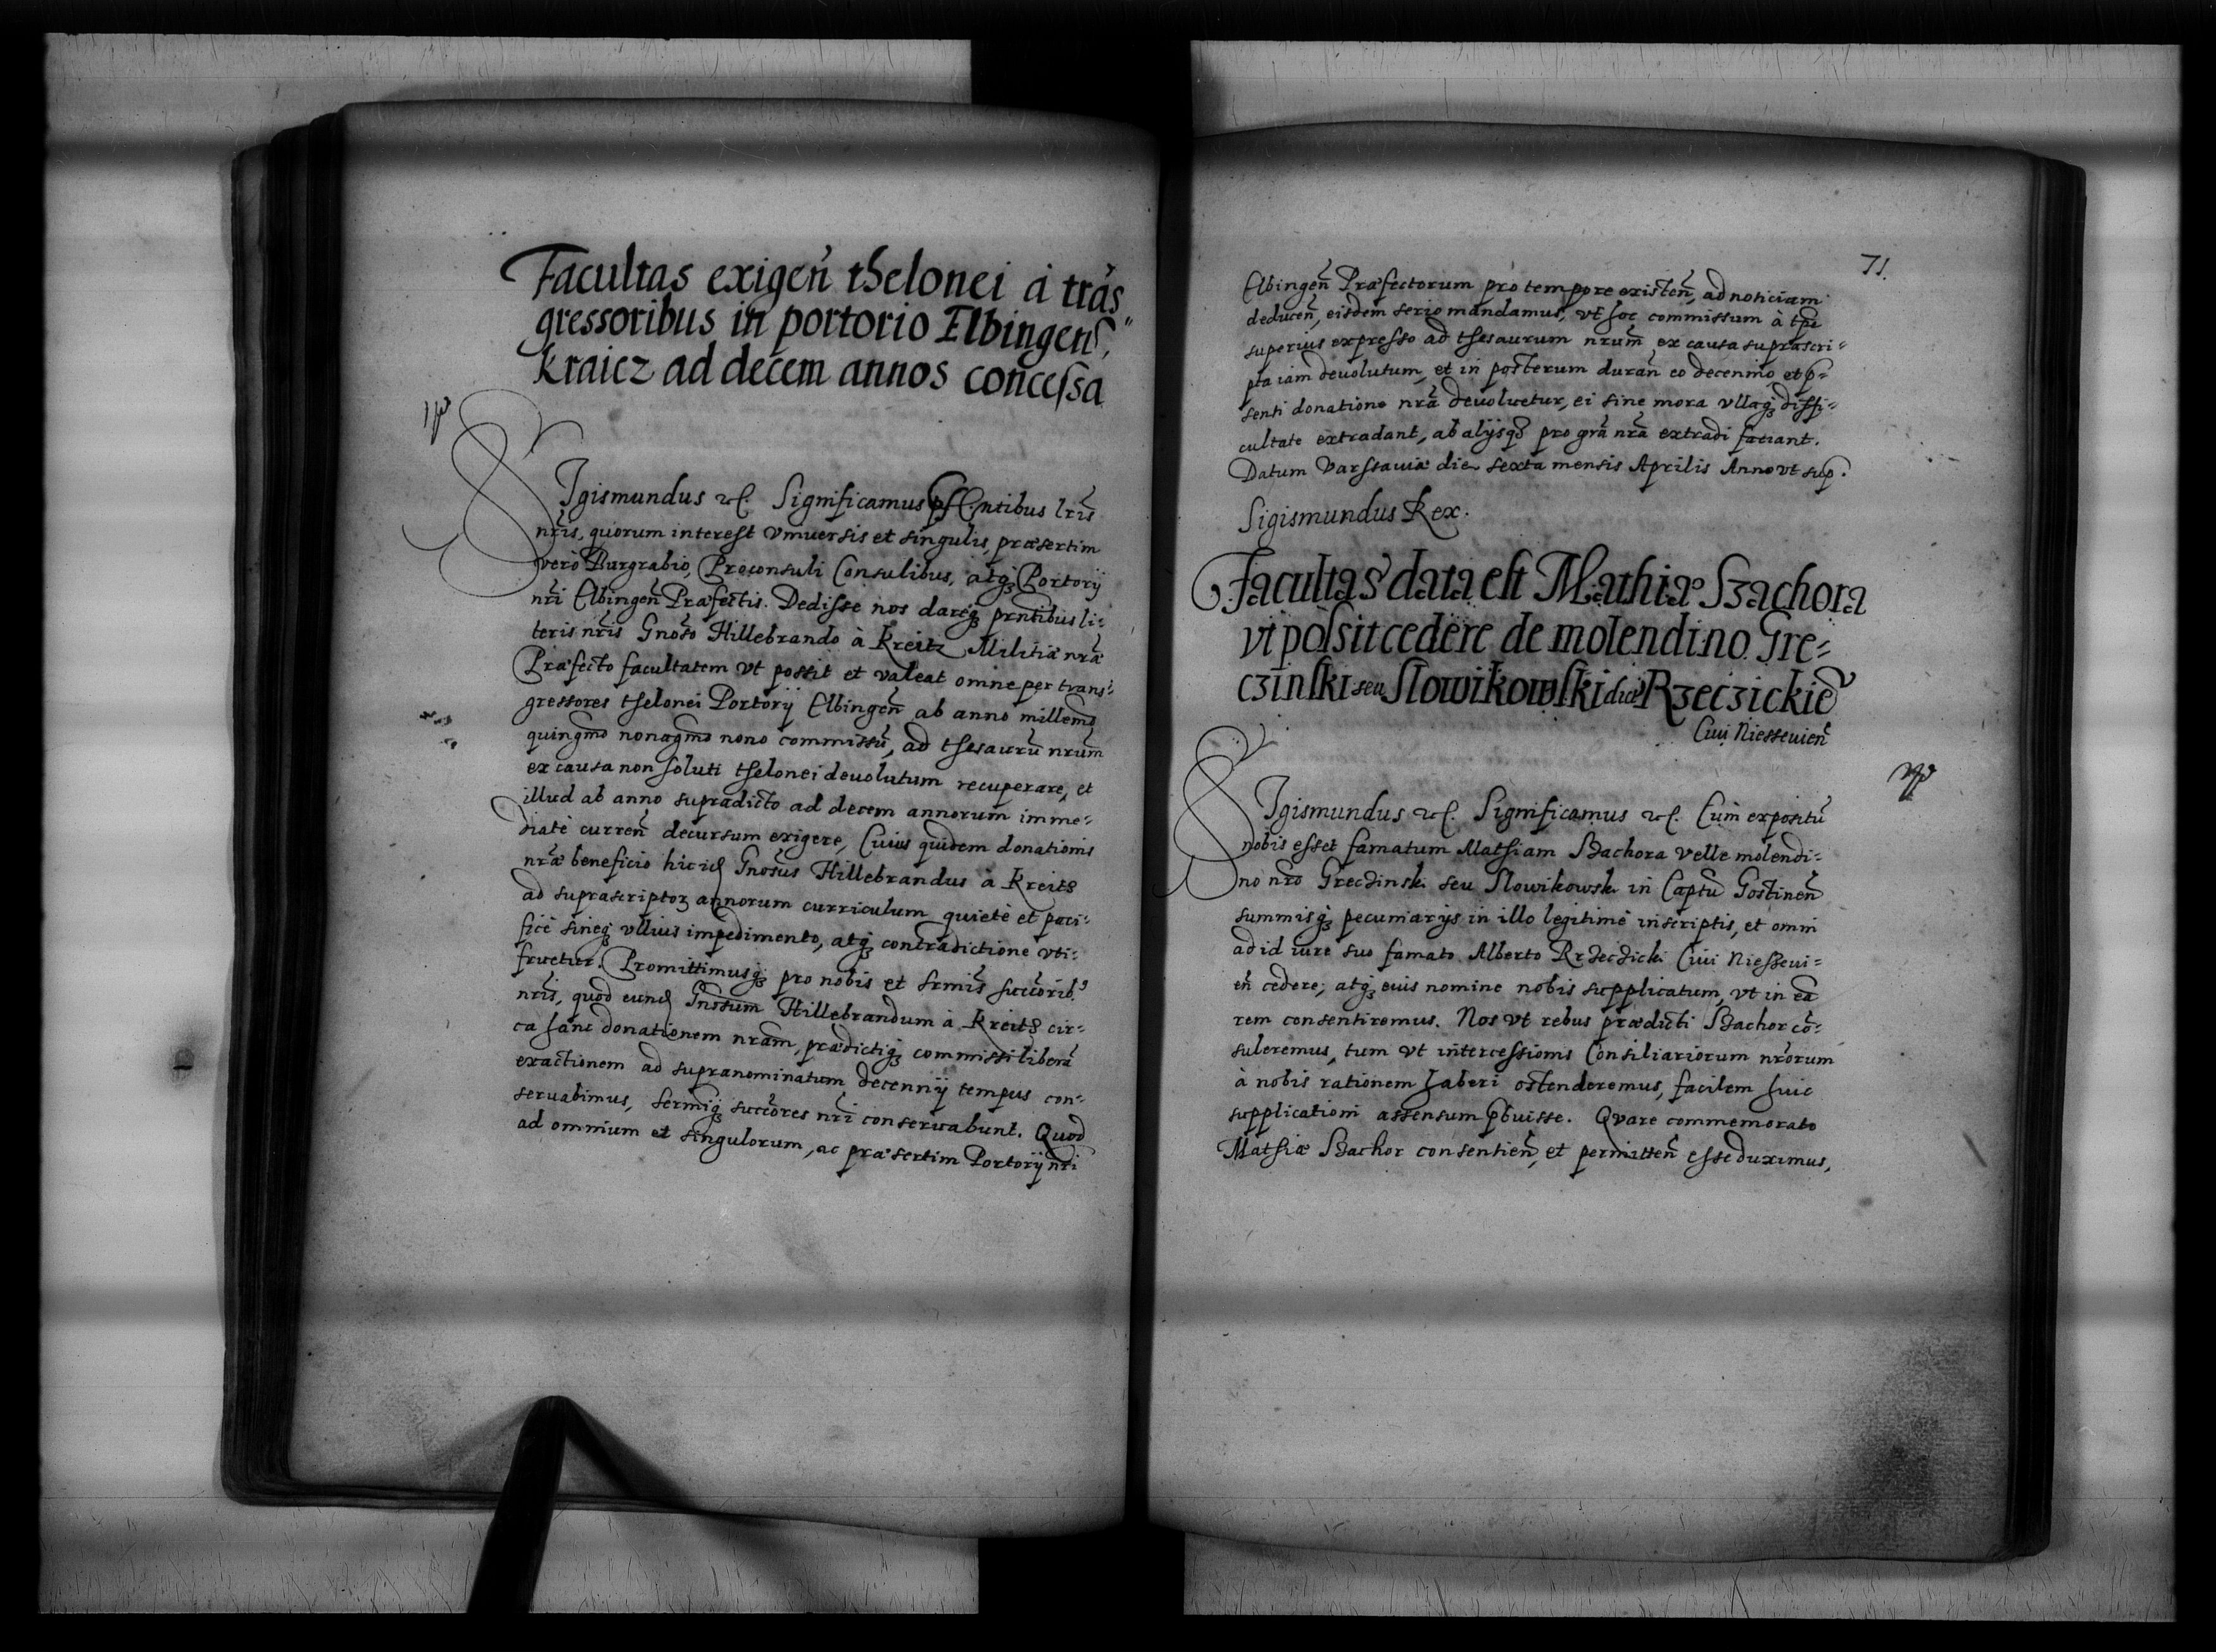 Facultas exigen̄ thelonei à trās
gressoribus in portorio Elbingen̄,
Kraicz ad decem annos concessa
SIgismundus etc. Significamus pſentibus lrīs
nrīs, quorum interest vniuersis et singulis, præsertim
vero Burgrabio, Proconsuli Consulibus, atq3 Portorij
nrī Elbingen̄ Præfectis. Dedisse nos dareq3 prntibus li-
teris nrīs Gnoso Hillebrando à Kreitz Militiæ nræ
Præfecto facultatem vt possit et valeat omne per trans-
gressores thelonei Portorij Elbingen̄ ab anno millemo
quingmo nonagmo nono commissū, ad thesaurū nrūm
ex causa non soluti thelonei deuolutum recuperare, et
illud ab anno supradicto ad decem annorum imme-
diatè curren̄ decursum exigere, Cuius quidem donationis
nræ beneficio hicid Gnosus Hillebrandus à Kreitz
ad suprascriptor annorum curriculum quietè et paci-
ficè sineq3 vllius impedimento, atq3 contradictione vti-
fruetur. Promittimusq3 pro nobis et srmis succorib9
nrīs, quod eund Gnosum Hillebrandum à Kreitz cir-
ca hanc donationem nrām, prædictiq3 commissi liberā
exactionem ad supranominatum decennij tempus con-
seruabimus, sermiq3 succores nrī conseruabunt. Quod
ad omnium et singulorum, ac præsertim Portorij nrī
71.
Elbingen̄ Præfectorum pro tempore existen̄, ad noticiam
deducen̄, eisdem serio mandamus, vt hoc commissum à tpe
superius expresso ad thesaurum nrum̄ ex causa suprascri-
pta iam deuolutum, et in posterum duran̄ eo decennio, et p̄-
senti donatione nrā deuoluetur, ei sine mora vllaq3 diffi-
cultate extradant, ab alijsq3 pro grā nrā extradi faciant.
Datum Varssauiæ die sexta mensis Aprilis Anno vt sup.
Sigismundus Rex.
Facultas data est Mathiæ Szachora
vt possit cedere de molendino Gre-
czinski seu Slowikowski dict Rzeczickie
Ciui Niesseuien̄
SIgismundus etc. Significamus etc. Cùm expositū
nobis esset famatum Mathiam Szachora velle molendi-
no nrō Greczinski seu Slowikowski in Captū Gostinen̄
summisq3 pecuniarijs in illo legitimè inscriptis, et omni
ad id iure suo famato Alberto Rrzeczicki Ciui Niesseui-
en̄ cedere; atq3 eius nomine nobis supplicatum, vt in eā
rem consentiremus. Nos vt rebus prædicti Szachor cō-
suleremus, tum vt intercessionis Consiliariorum nrōrum
à nobis rationem haberi ostenderemus, facilem huic
supplicationi assensum p̄buisse. Quare commemorato
Mathiæ Szachor consentien̄, et permitten̄ esse duximus,